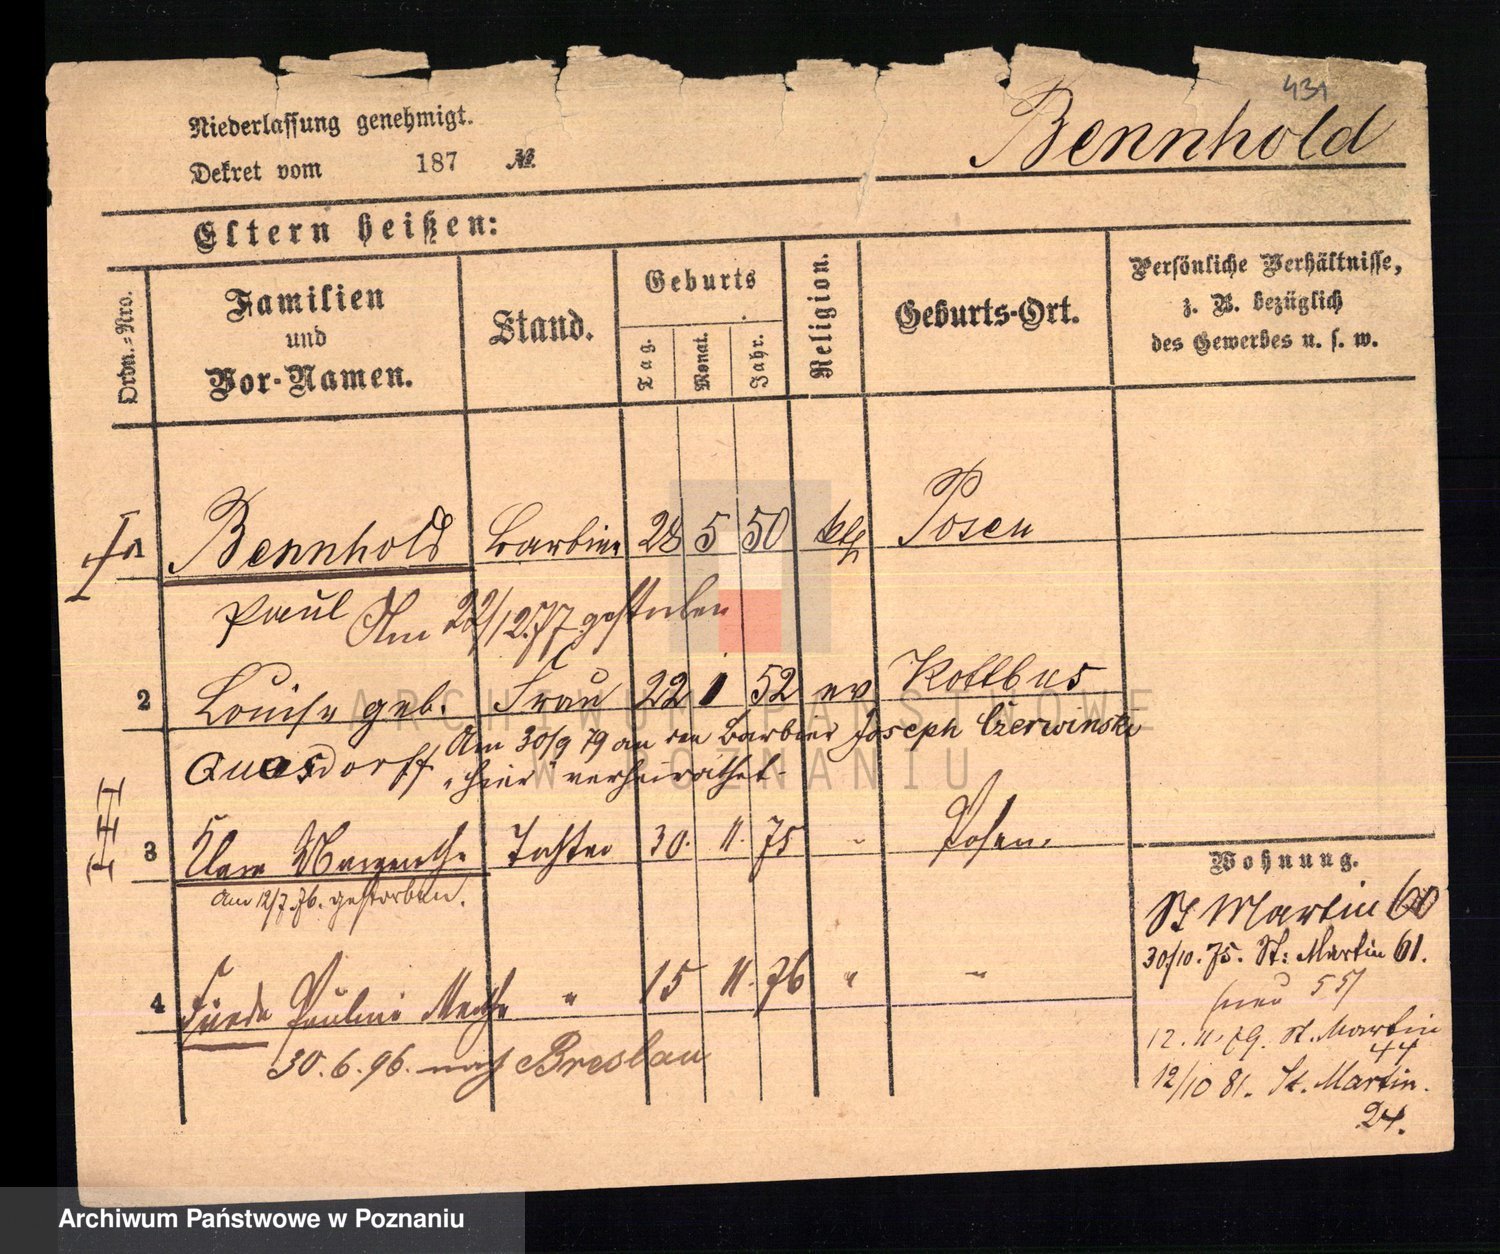 431
Niederlassung genehmigt.
Dekret vom 187 №.
Bennhold
Eltern heißen:
Ordn.-Nro.
Familien
und
Vor-Namen.
Stand.
Geburts
Tag.
Monat.
Jahr.
Religion.
Geburts-Ort.
Persönliche Verhältnisse,
z. B. bezüglich
des Gewerbes u. s. w.
Bennhold Barbier 28 5 50 kth Posen
Paul Am 22/12.77 gestorben
2 Louise geb. Frau 22 1 52 ev Kottbus
Quasdorff Am 30/9 79 an den Barbier Joseph Czerwinski
hier verheirathet.
3 Clara Margarethe Tochter 30. 11. 75 " Posen.
Am 12/7.76. gestorben.
4 Pauline Martha " 15 11. 76 " "
30.6.96. nach Breslau
Wohnung.
St Martin 60
30/10.75. St: Martin 61.
57
12.11.79. St. Martin
44
12/10 81. St. Martin.
24.
ARCHIWUM PAŃSTWOWE
W POZNANIU
Archiwum Państwowe w Poznaniu